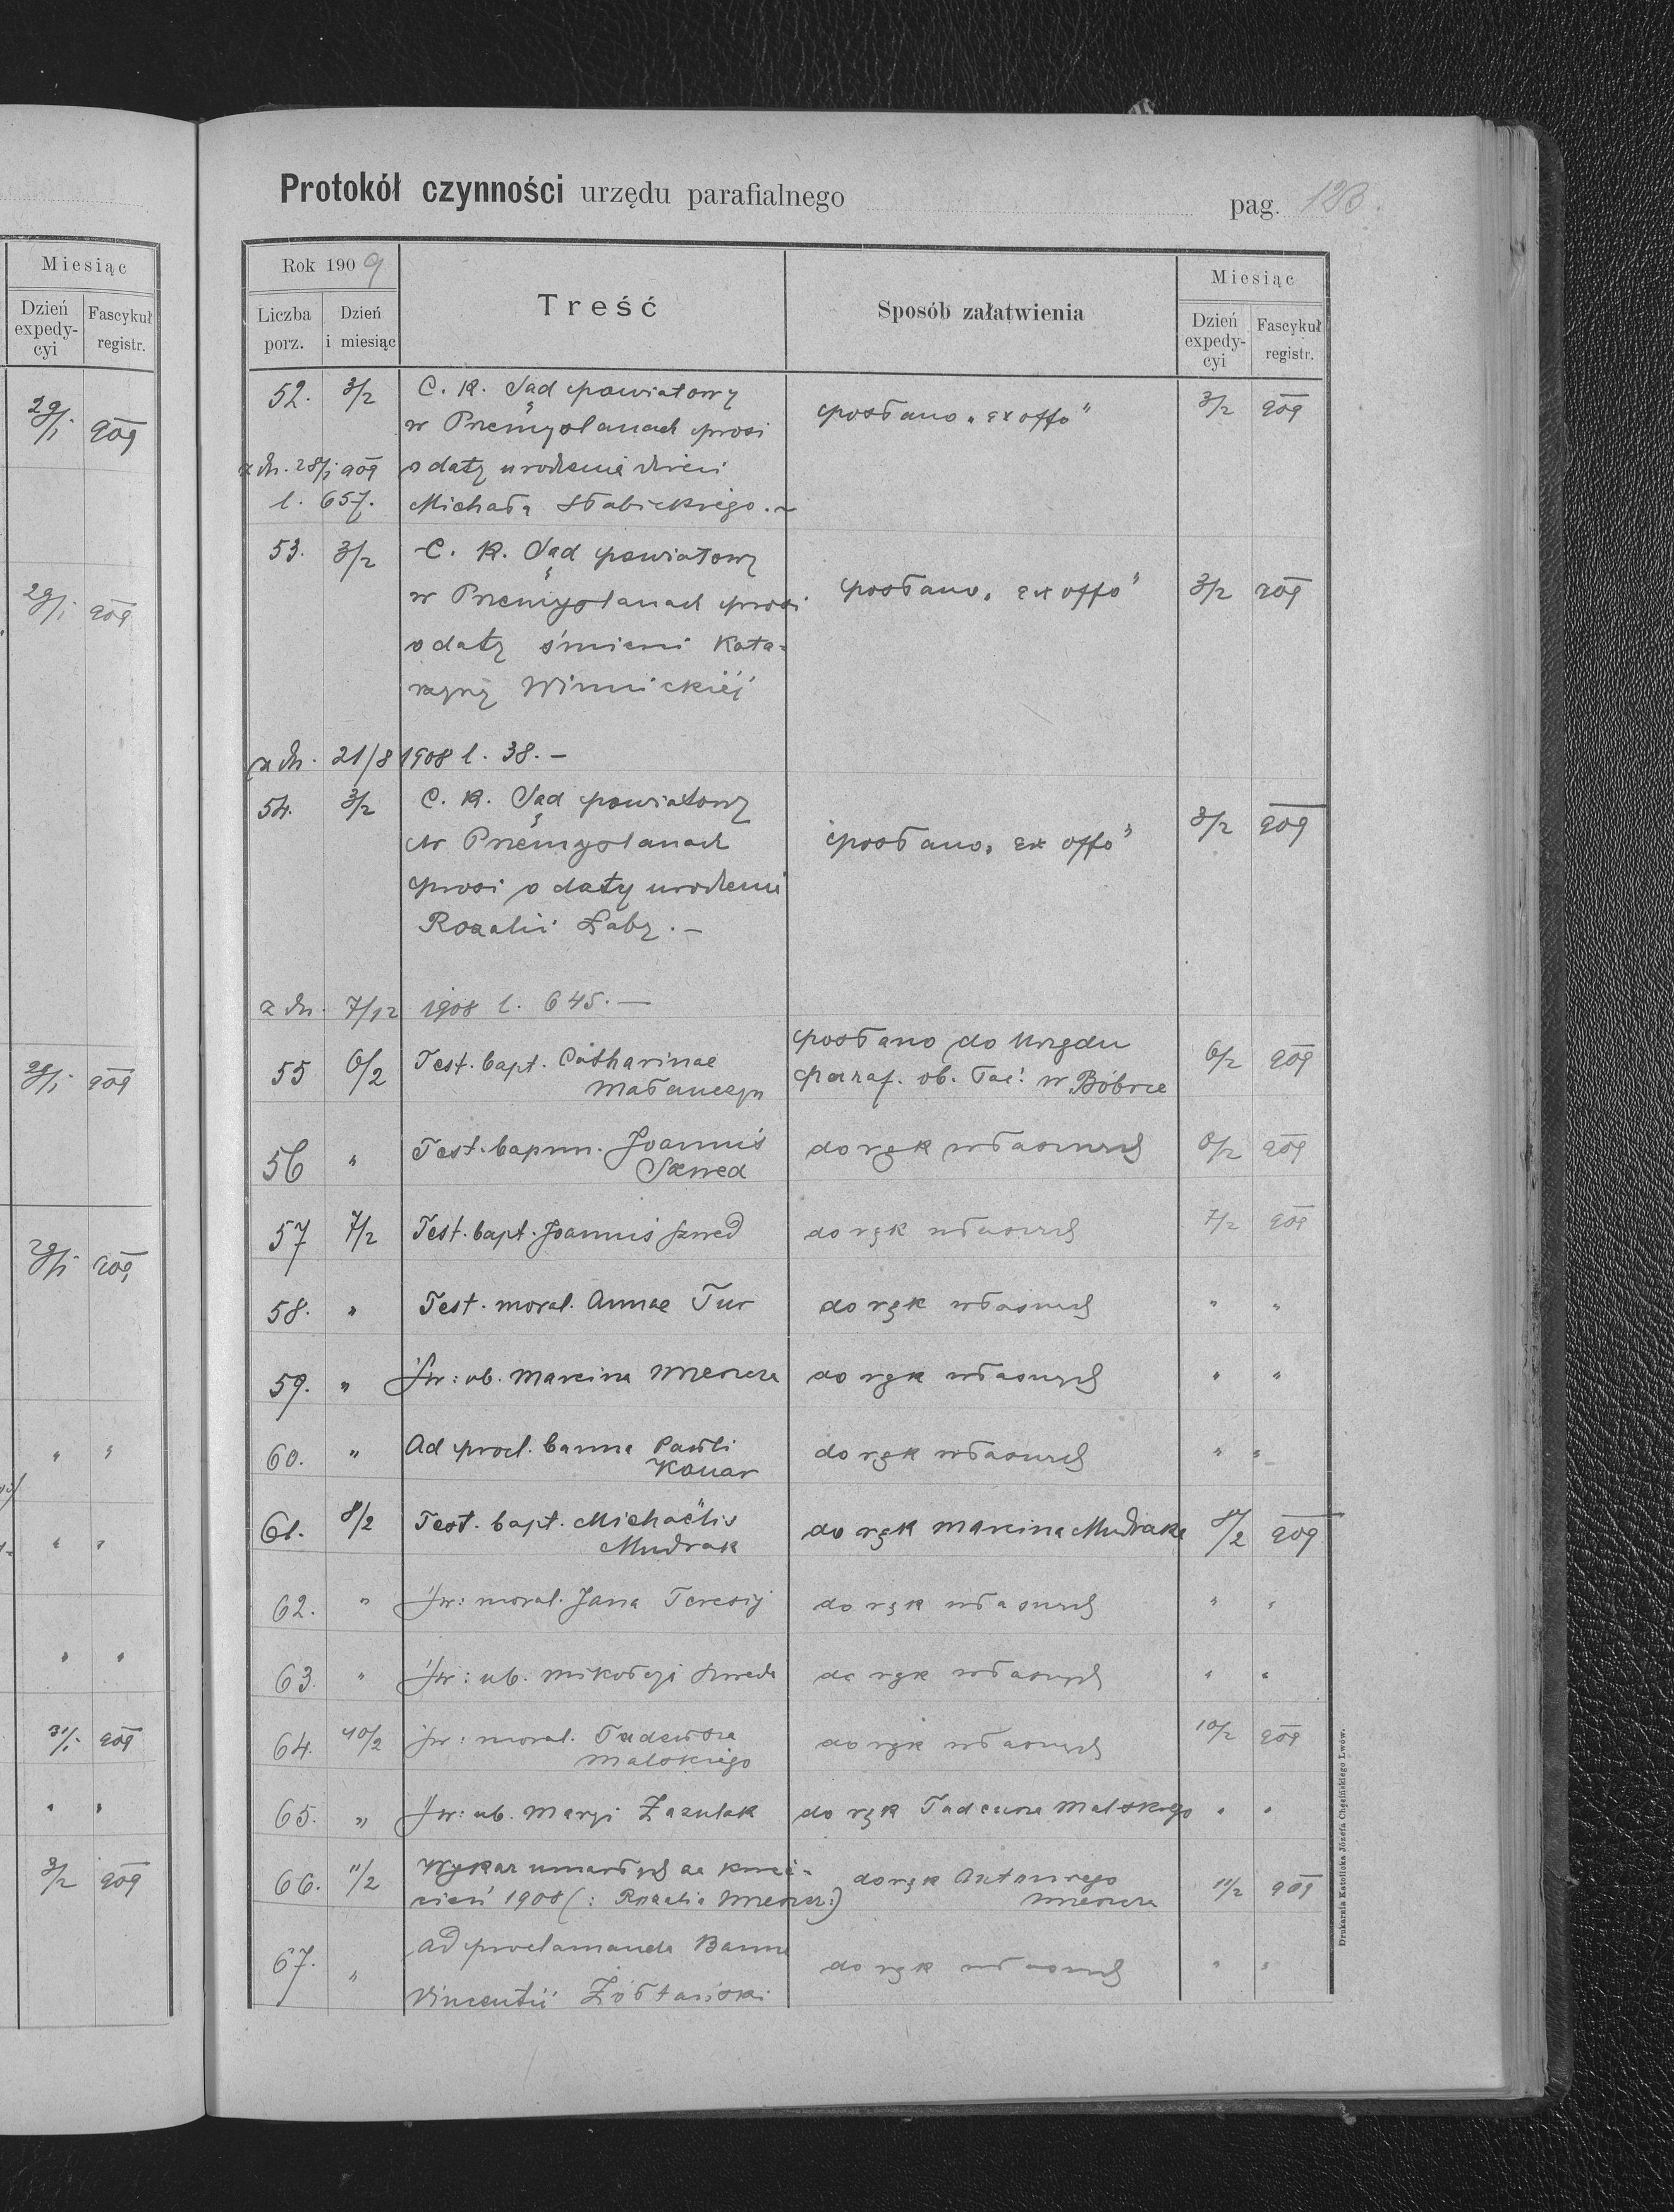 Protokół czynności urzędu parafialnego pag. 123.
Miesiąc
Dzień expedy-cyi Fascykuł registr.
29/1 909
29/1 909
29/1 909
29/1 909
" "
" "
" "
31/1 909
" "
3/2 909
Rok 1909
Liczba porz. Dzień i miesiąc
Treść
Sposób załatwienia
Miesiąc
Dzień expedy-cyi Fascykuł registr.
52. 3/2 C. K. Sąd powiatowy posłano "ex offo" 3/2 909
w Przemyslanach prosi
z dn. 28/1 909 o daty urodzenia dzieci
l. 657. Michała Słabickiego. ~
53. 3/2 C. K. Sąd powiatowy
w Przemyslanach prosi posłano "ex offo" 3/2 909
o daty śmierci Kata-
rzyny Winnickiéj
z dn. 21/8 1908 l. 38. —
54. 3/2 C. K. Sąd powiatowy
w Przemyslanach posłano "ex offo" 3/2 909
prosi o daty urodzenia
Rozalii Łaby. —
z dn. 7/12 1908 l. 645. —
55 6/2 Test. bapt. Catharinae posłano do Urzędu 6/2 909
paraf. ob. łac. w Bóbrce
56 " Test. bapt. Joannis do rąk własnych 6/2 909
Szwed
57 7/2 Test. bapt. Joannis Szwed do rąk własnych 7/2 909
58. " Test. moral. Annae Tur do rąk własnych " "
59. " Św: ub. Marcina do rąk własnych " "
60. " Ad procl. banna Pawli do rąk własnych " "
61. 8/2 Test. bapt. Michaëlis do rąk Marcina Mudraka 8/2 909
Mudrak
62. " Św: moral. Jana Teresij do rąk własnych " "
63. " Św: ub. Mikołaja Szweda do rąk własnych " "
64. 10/2 Św: moral. Tadeusza do rąk własnych 10/2 909
Malskiego
65. " Św: ub. Maryi Zazulak do rąk Tadeusza Malskiego " "
66. 11/2 Wykaz umarłych za kwie- do rąk Antoniego 11/2 909
cień 1908 (: Rozalia
67. " Ad proclamanda Banna do rąk własnych " "
Vincentii Żółtański
Drukarnia Katolicka Józefa Chęcińskiego Lwów.